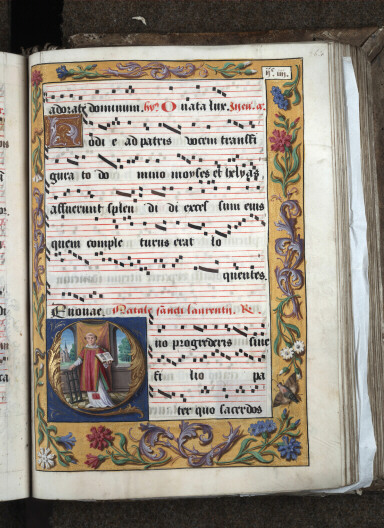 ij. iiij.
adorate dominum. hy. O nata lux. In eu. a.
Hodi e ad patris vocem transfi
gura to do mino moyses et helyas
assuerunt splen di di excessum eius
quem comple turus erat lo
quentes.
Euouae. Natale sancti laurentii. R.
Quo progrederis sine
fi lio pa
ter quo sacerdos